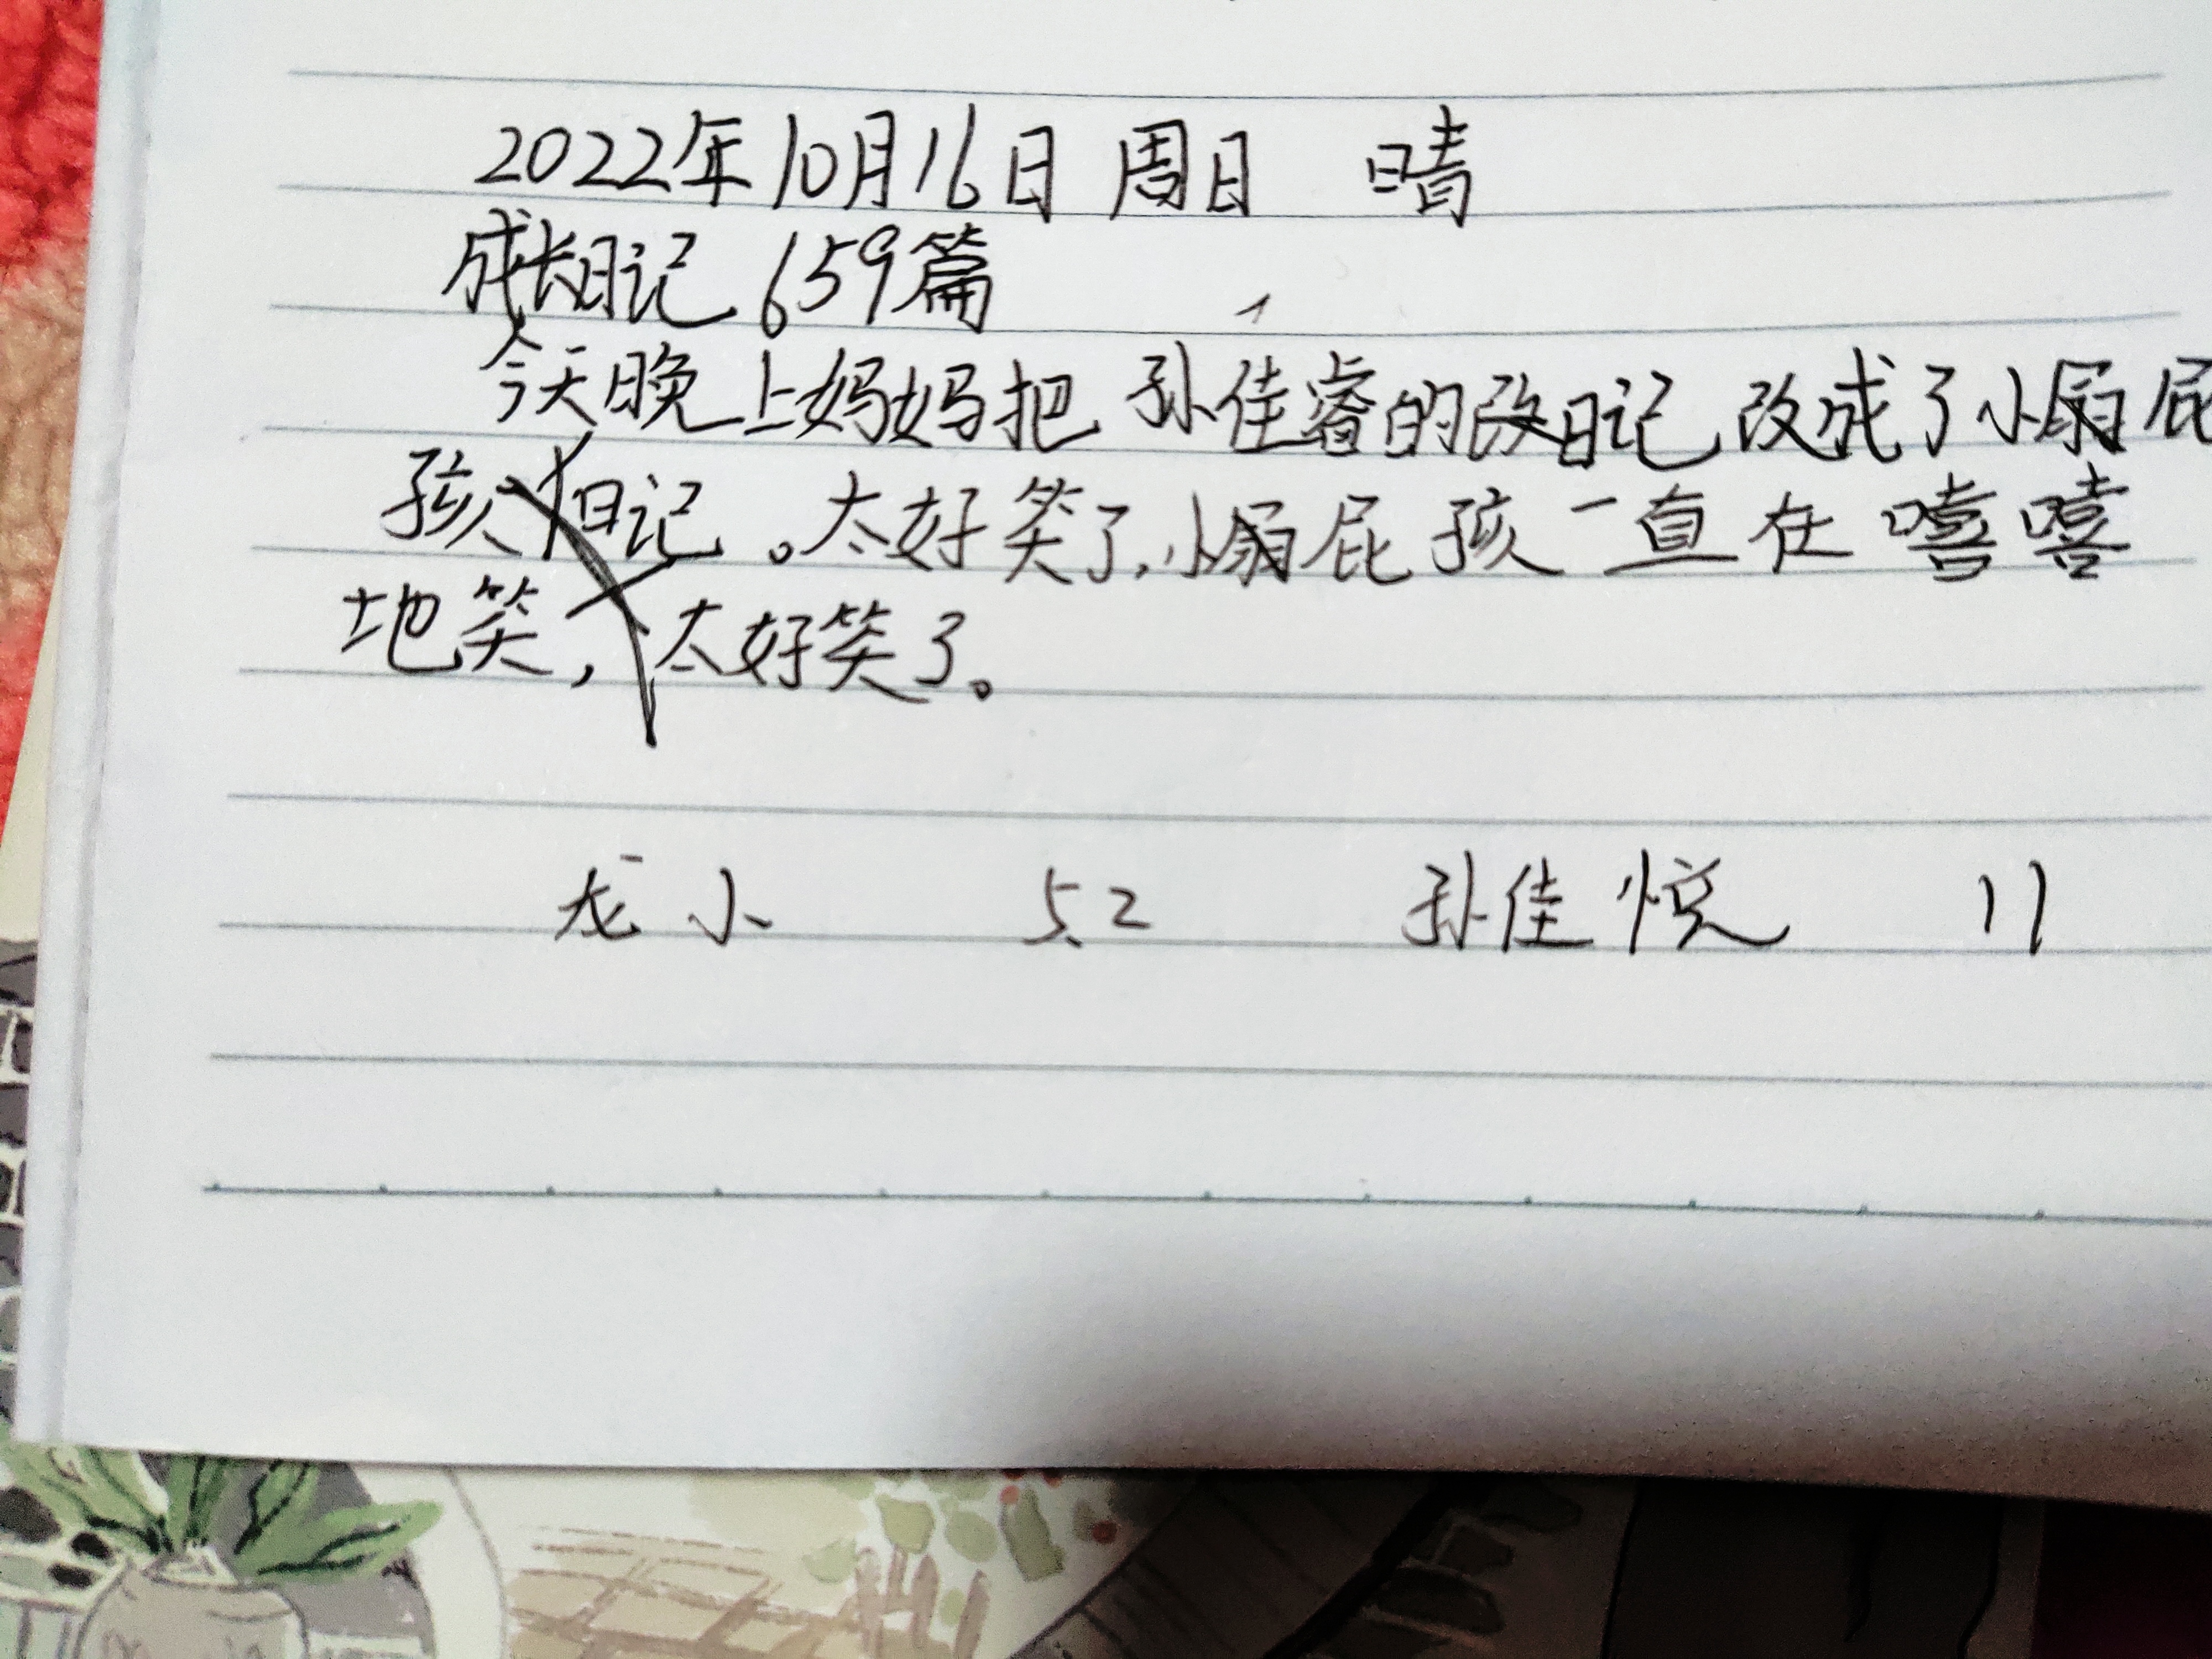 2022年10月16日 周日 晴
成长日记 659篇
今天晚上妈妈把 孙佳睿的改日记 改成了小屁
孩日记。太好笑了,小屁孩一直在嘻嘻
地笑,太好笑了。
龙小 5.2 孙佳悦 11